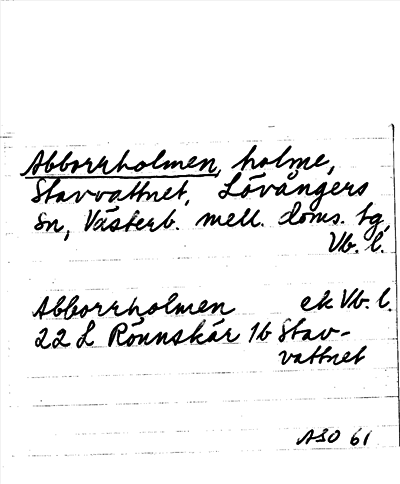 Abborrholmen, holme,
Stavvattnet, Lövångers
Sn, Västerb. mell. doms. tg,
Vb. l.
Abborrholmen ek Vb. l.
22 L Rönnskär 1b Stav-
vattnet
ASO 61